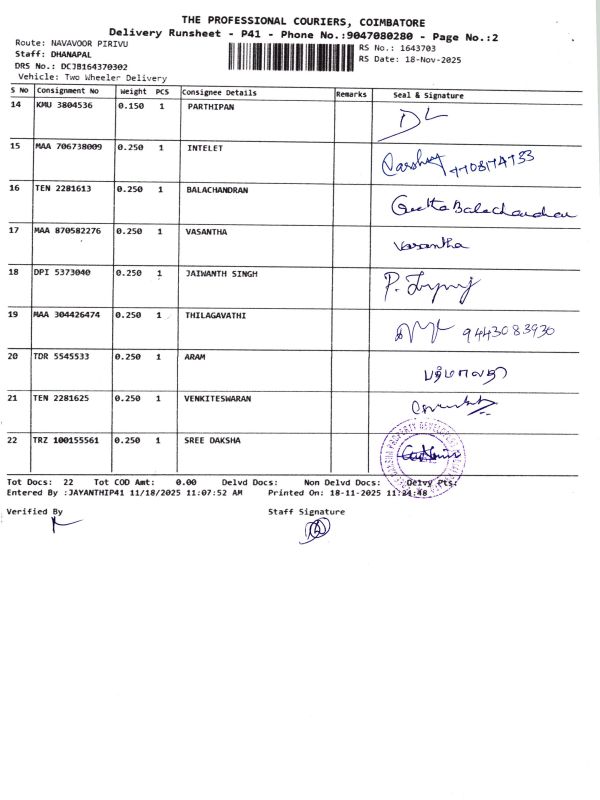 THE PROFESSIONAL COURIERS, COIMBATORE
Delivery Runsheet - P41 - Phone No.:9047080280 - Page No.:2
Route: NAVAVOOR PIRIVU
RS No.: 1643703
Staff: DHANAPAL
RS Date: 18-Nov-2025
DRS No.: DCJB164370302
Vehicle: Two Wheeler Delivery
S No Consignment No Weight PCS Consignee Details Remarks Seal & Signature
14 KMU 3804536 0.150 1 PARTHIPAN
15 MAA 706738009 0.250 1 INTELET
16 TEN 2281613 0.250 1 BALACHANDRAN Geetha Balachandran
17 MAA 870582276 0.250 1 VASANTHA Vasantha
18 DPI 5373040 0.250 1 JAIWANTH SINGH
19 MAA 304426474 0.250 1 THILAGAVATHI 9443083930
20 TDR 5545533 0.250 1 ARAM
21 TEN 2281625 0.250 1 VENKITESWARAN
22 TRZ 100155561 0.250 1 SREE DAKSHA
Tot Docs: 22 Tot COD Amt: 0.00 Delvd Docs: Non Delvd Docs: Delvy Pts:
Entered By :JAYANTHIP41 11/18/2025 11:07:52 AM Printed On: 18-11-2025 11:24:48
Verified By Staff Signature